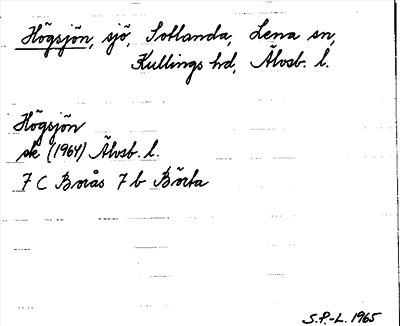 Högsjön, sjö, Sotlanda, Lena sn,
Kullings hd, Älvsb. l.
Högsjön
sk (1964) Älvsb. l.
7 C Borås 7 b Börta
S.P.-L. 1965